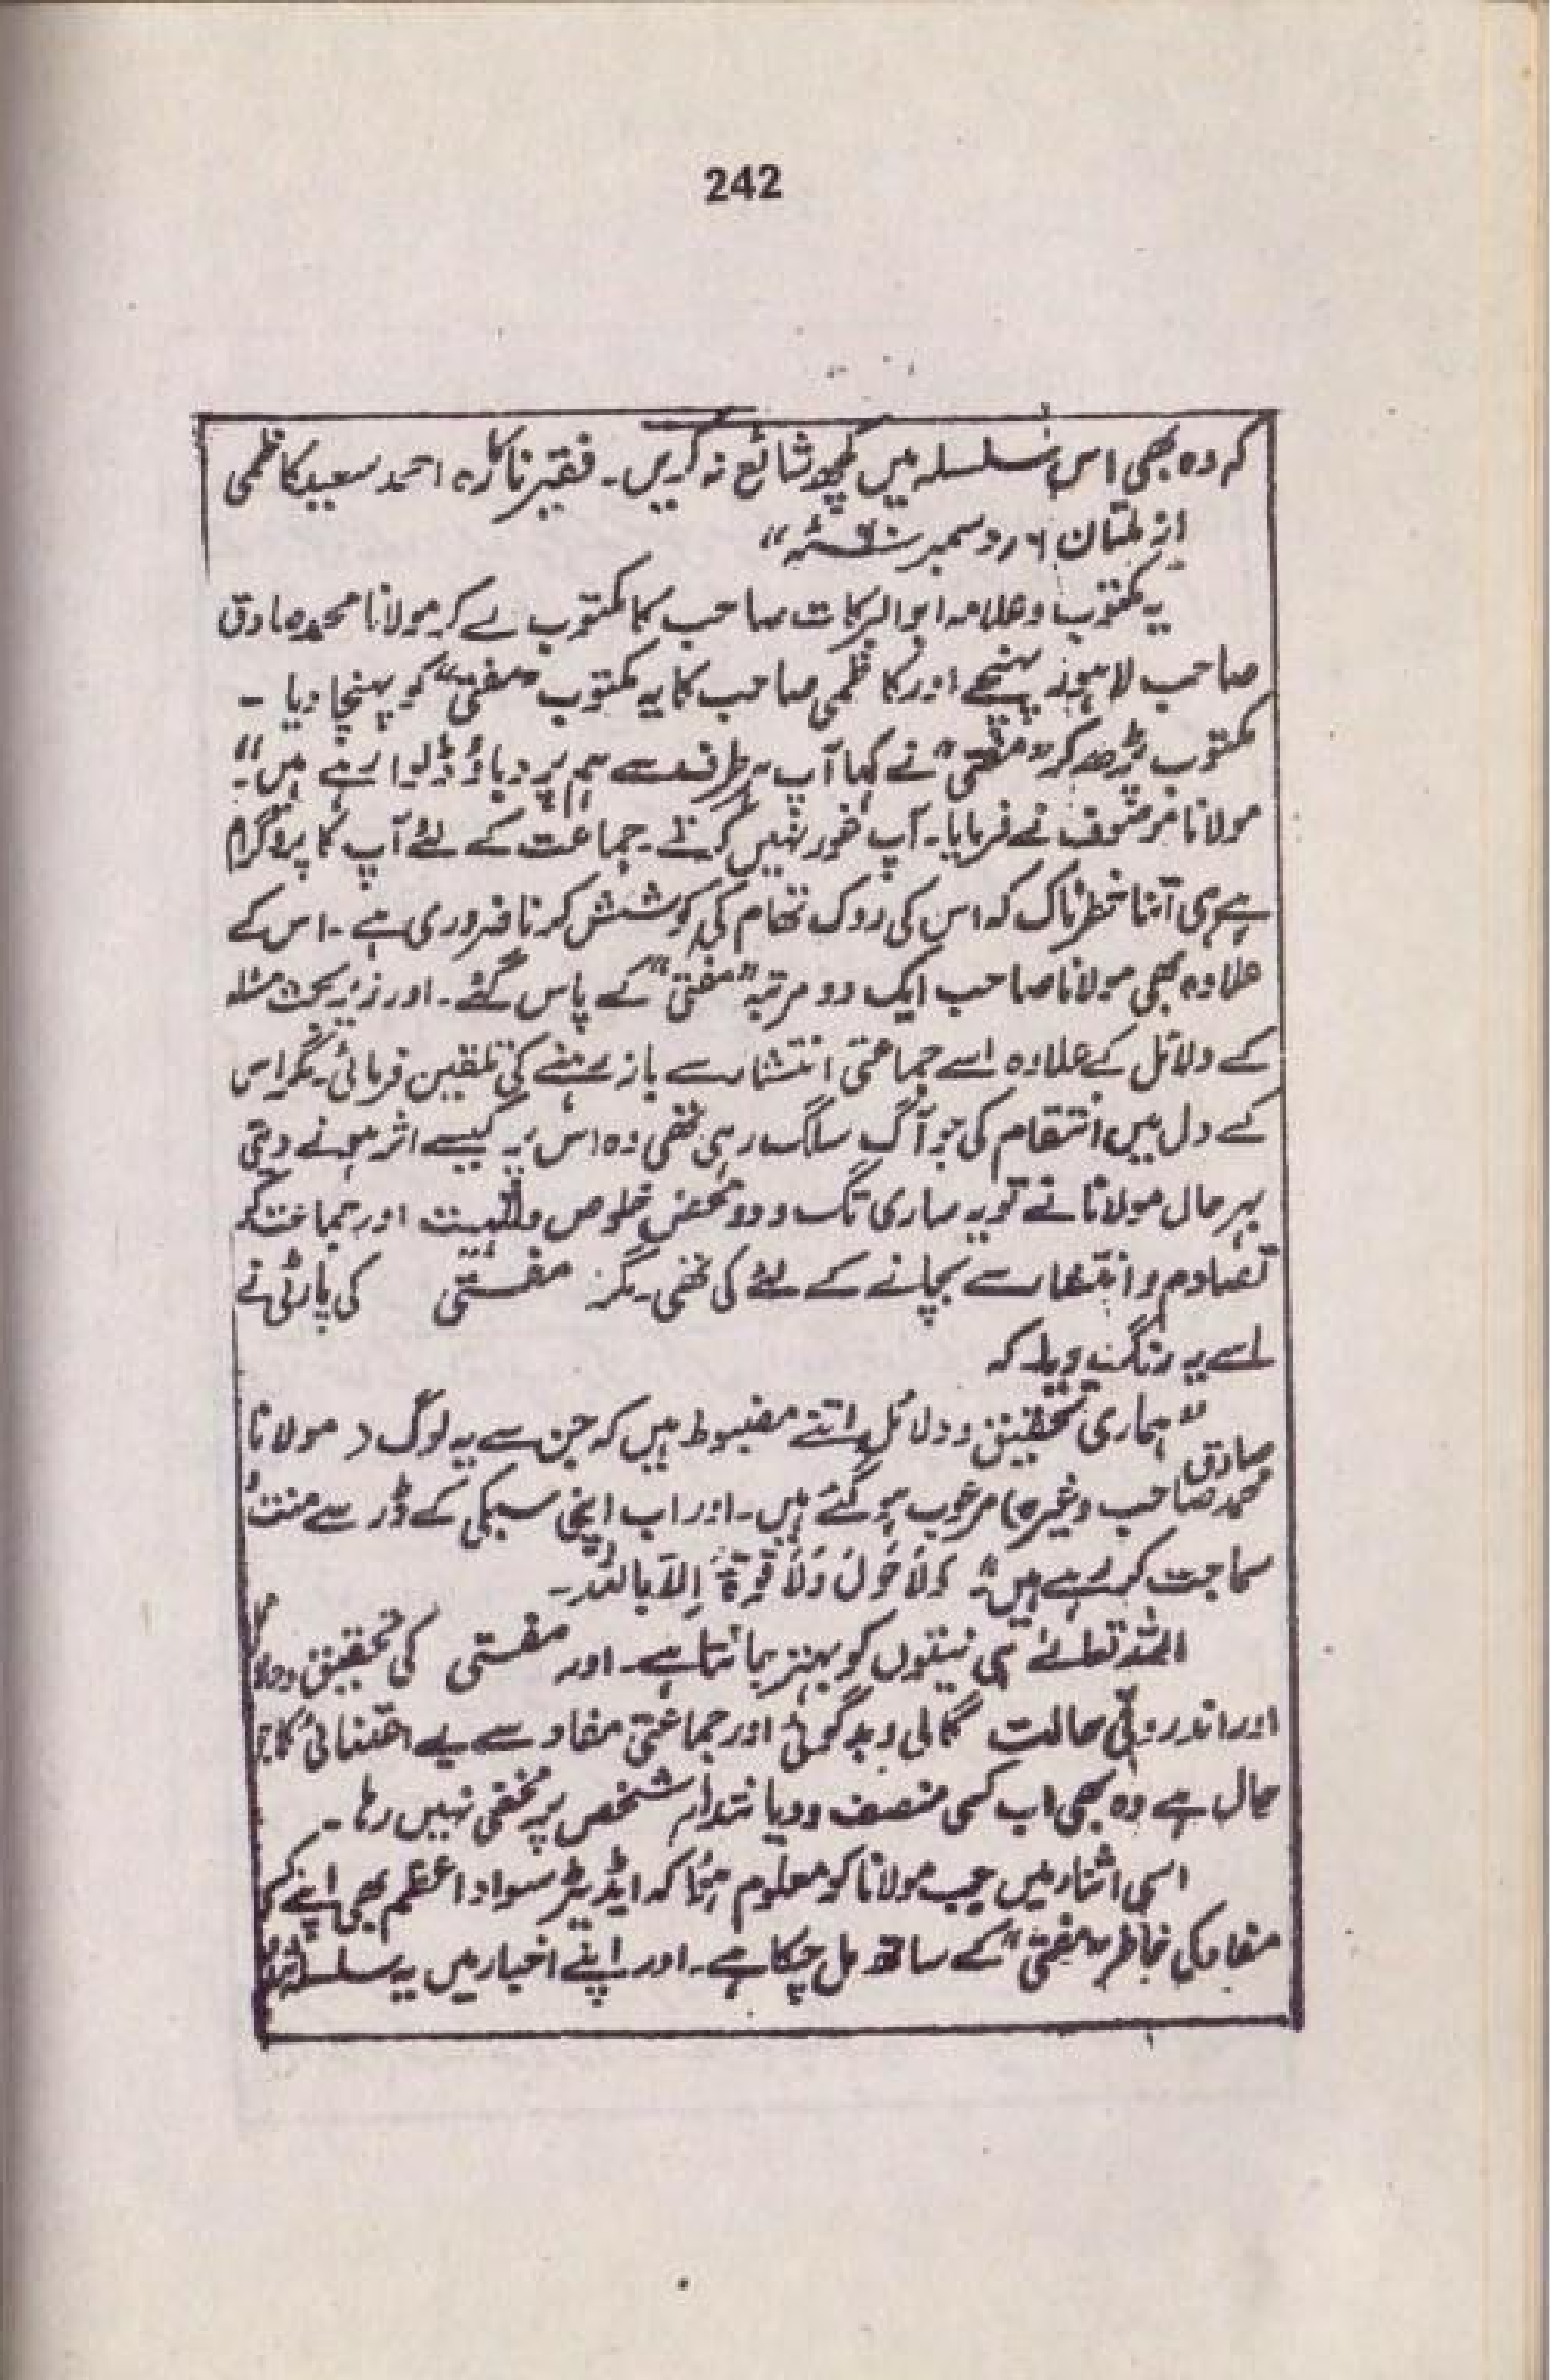 242
کہ وہ بھی اس سلسلہ میں کچھ شائع نہ کریں۔ فقیر ناکارہ احمد سعید کاظمی
از ملتان ۶ر دسمبر ۶۰ئہ"
یہ مکتوب و علامہ ابوالبرکات صاحب کا مکتوب لے کر مولانا محمد صادق
صاحب لاہور پہنچے اور کاظمی صاحب کا یہ مکتوب "مفتی" کو پہنچا دیا ۔
مکتوب پڑھ کر "مفتی" نے کہا آپ ہر طرف سے ہم پر دباؤ ڈلوا رہے ہیں"۔
مولانا موصوف نے فرمایا۔ آپ غور نہیں کرتے۔ جماعت کے لئے آپ کا پروگرام
ہے ہی اتنا خطرناک کہ اس کی روک تھام کی کوشش کرنا ضروری ہے۔ اس کے
علاوہ بھی مولانا صاحب ایک دو مرتبہ "مفتی" کے پاس گئے۔ اور زیر بحث مسئلہ
کے دلائل کے علاوہ اسے جماعتی انتشار سے باز رہنے کی تلقین فرمائی۔ مگر اس
کے دل میں انتقام کی جو آگ سلگ رہی تھی وہ اس پر کیسے اثر ہونے دیتی
بہر حال مولانا نے تو یہ ساری تگ و دو محض خلوص و للہیت اور جماعت کو
تصادم و انتشار سے بچانے کے لئے کی تھی۔ مگر مفتی کی پارٹی نے
اسے یہ رنگ دیا کہ
"ہماری تحقیق و دلائل اتنے مضبوط ہیں کہ جن سے یہ لوگ ( مولانا
محمد صادق صاحب وغیرہ) مرعوب ہو گئے ہیں۔ اور اب اپنی سبکی کے ڈر سے منت
سماجت کر رہے ہیں"۔ وَلَا حَوْلَ وَلَا قُوَّۃَ اِلَّا بِاللہ۔
اللہ تعالیٰ ہی نیتوں کو بہتر جانتا ہے۔ اور مفتی کی تحقیق و
اور اندرونی حالت گالی و بدگوئی اور جماعتی مفاد سے بے اعتنائی کا جو
حال ہے وہ بھی اب کسی منصف و دیانتدار شخص پر مخفی نہیں رہا۔
اسی اثناء میں جب مولانا کو معلوم ہوا کہ ایڈیٹر سواد اعظم بھی اپنے کسی
مفاد کی خاطر "مفتی" کے ساتھ مل چکا ہے۔ اور اپنے اخبار میں یہ سلسلہ